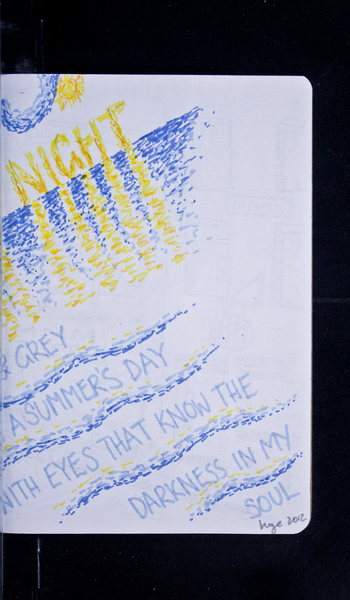 NIGHT
& GREY
A SUMMER'S DAY
WITH EYES THAT KNOW THE
DARKNESS IN MY
SOUL
2012